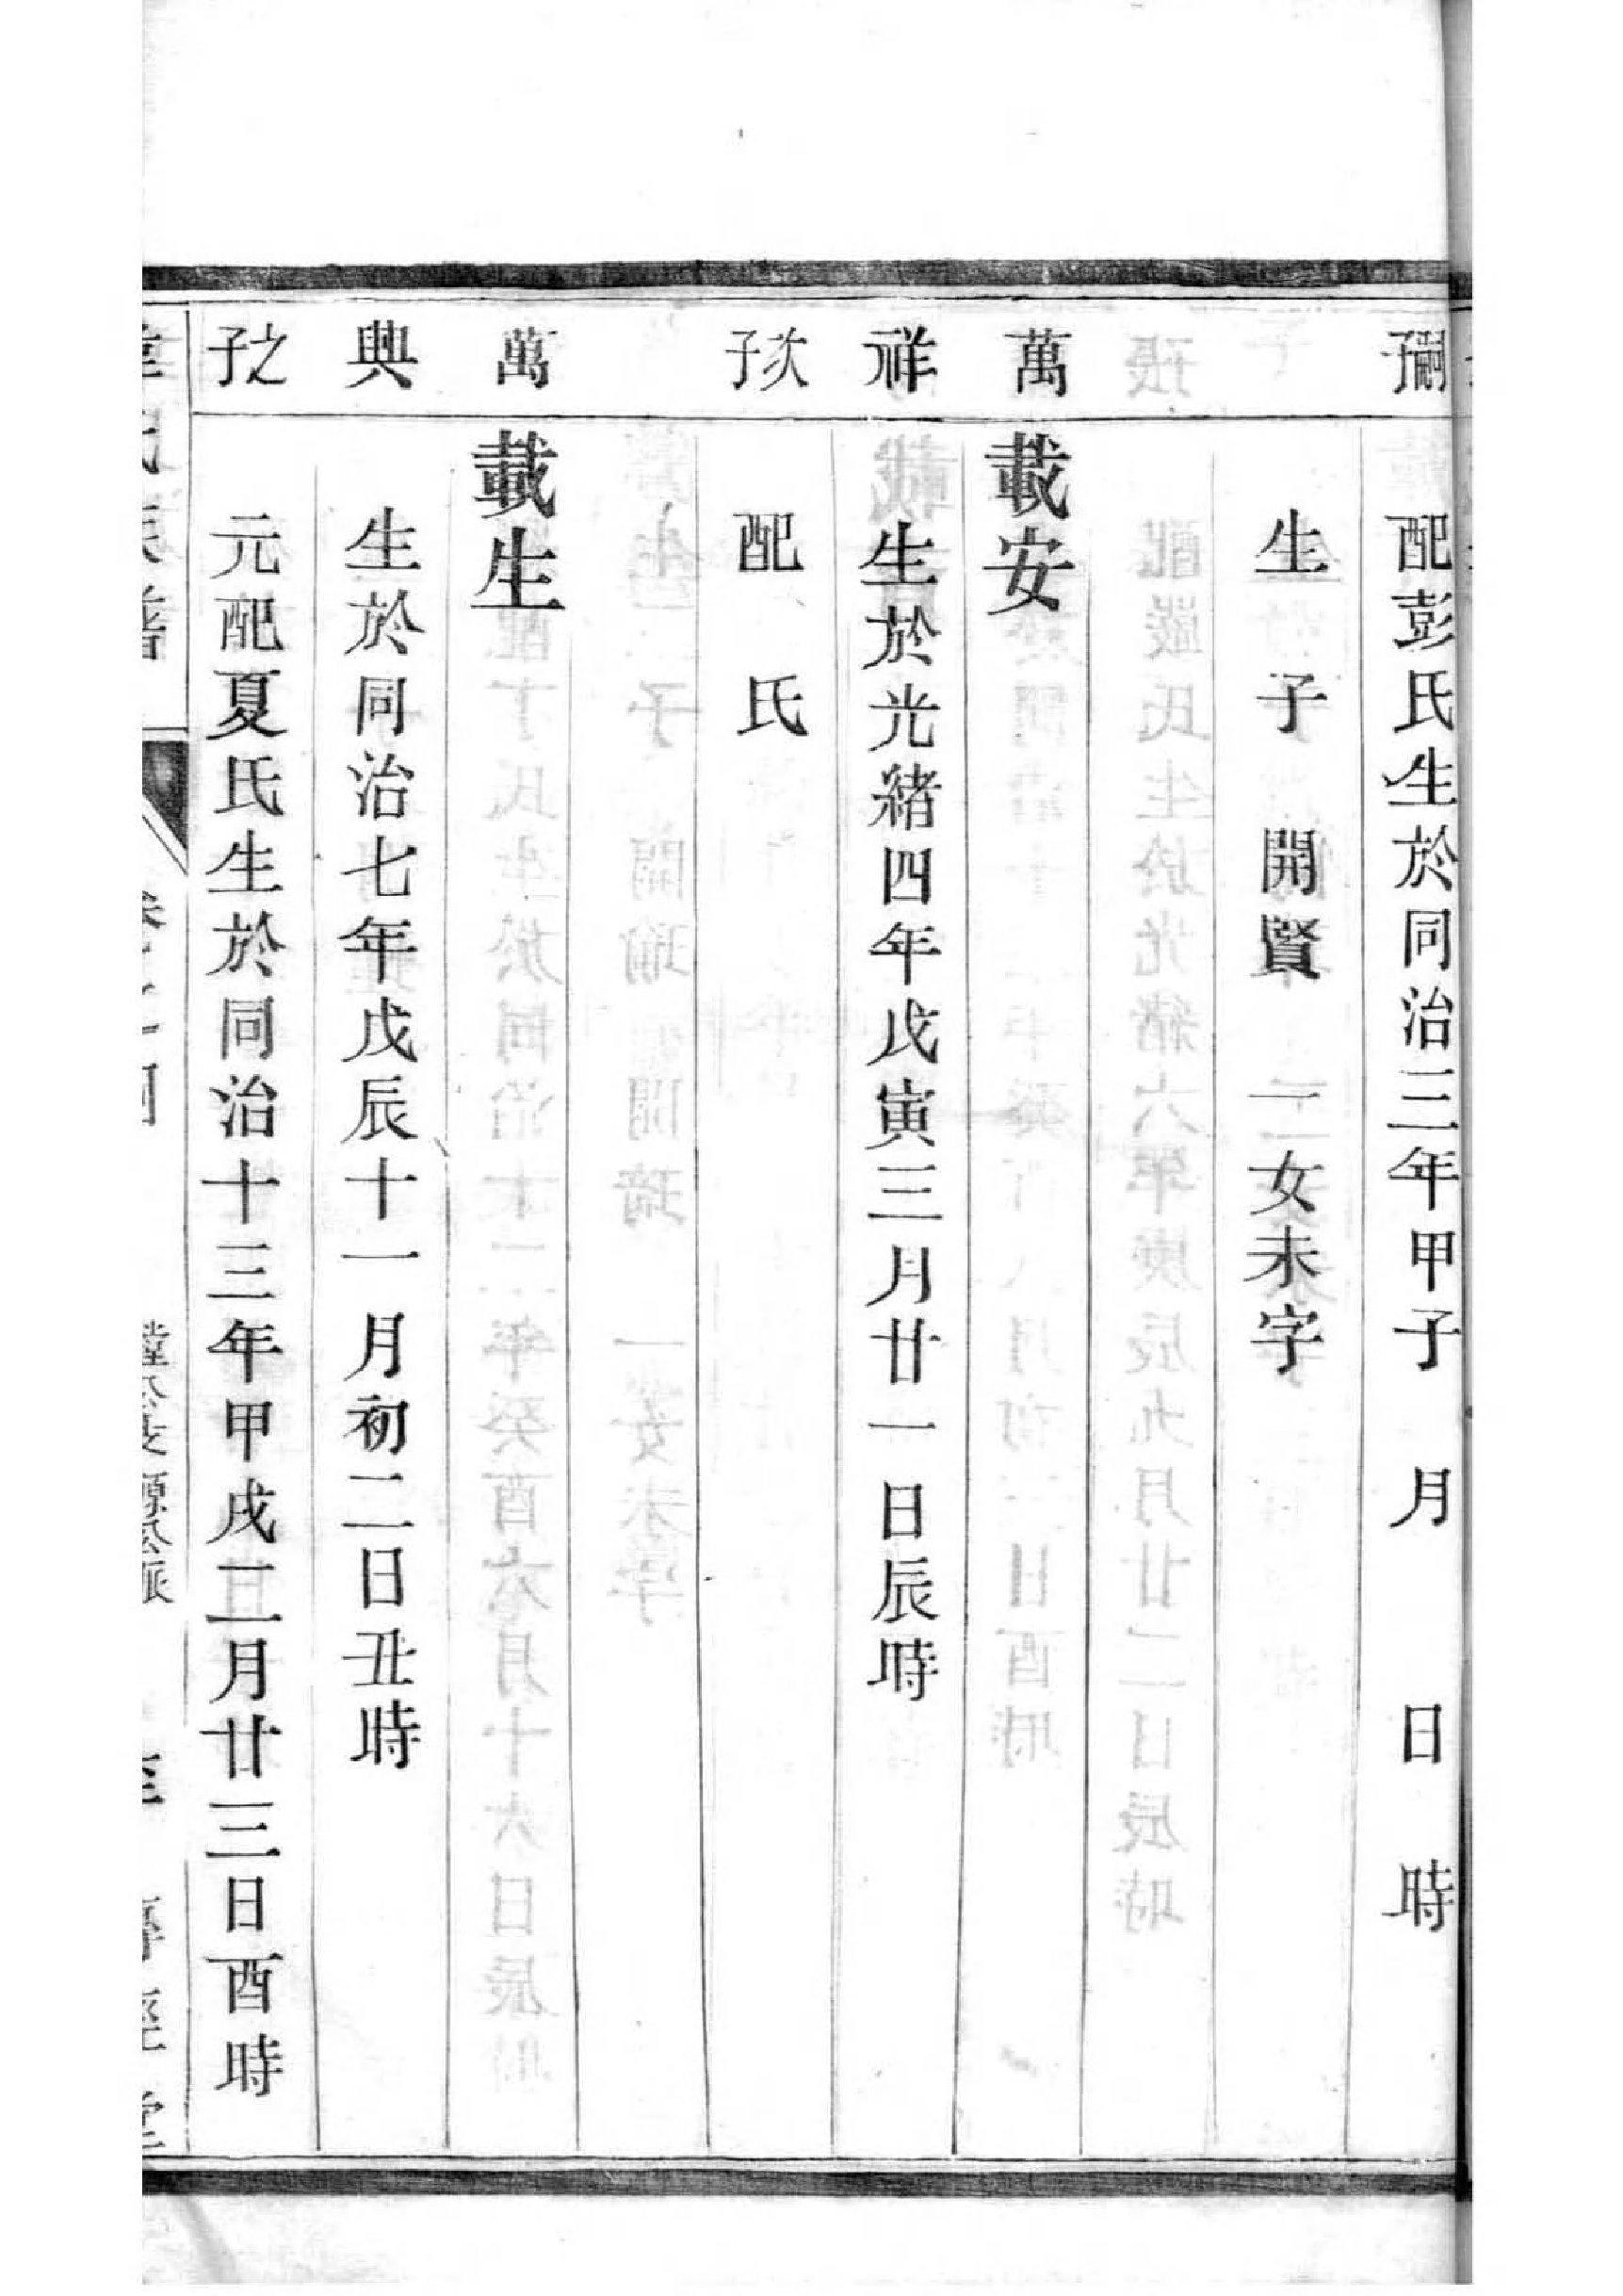 嗣子
配彭氏生於同治三年甲子 月 日 時
生 子 開賢 一女未字
萬
載安
祥
生於光緒四年戊寅三月廿一日辰時
次子
配 氏
萬
載生
興
生於同治七年戊辰十一月初二日丑時
之子
元配夏氏生於同治十三年甲戌二月廿三日酉時